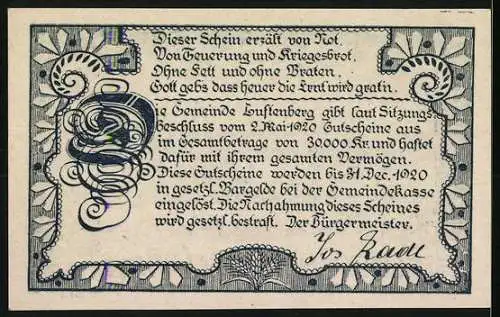 Dieser Schein erzält von Not.
Von Teuerung und Kriegesbrot.
Ohne Fett und ohne Braten.
Gott gebs dass heuer die Ernt wird gratn.
Die Gemeinde Luftenberg gibt laut Sitzungs-
beschluss vom 2. Mai 1920 Gutscheine aus
im Gesamtbetrage von 30.000 Kr. und haftet
dafür mit ihrem gesamten Vermögen.
Diese Gutscheine werden bis 31. Dec. 1920
in gesetzl. Bargelde bei der Gemeindekasse
eingelöst. Die Nachahmung dieses Scheines
wird gesetzl. bestraft. Der Bürgermeister.
Jos